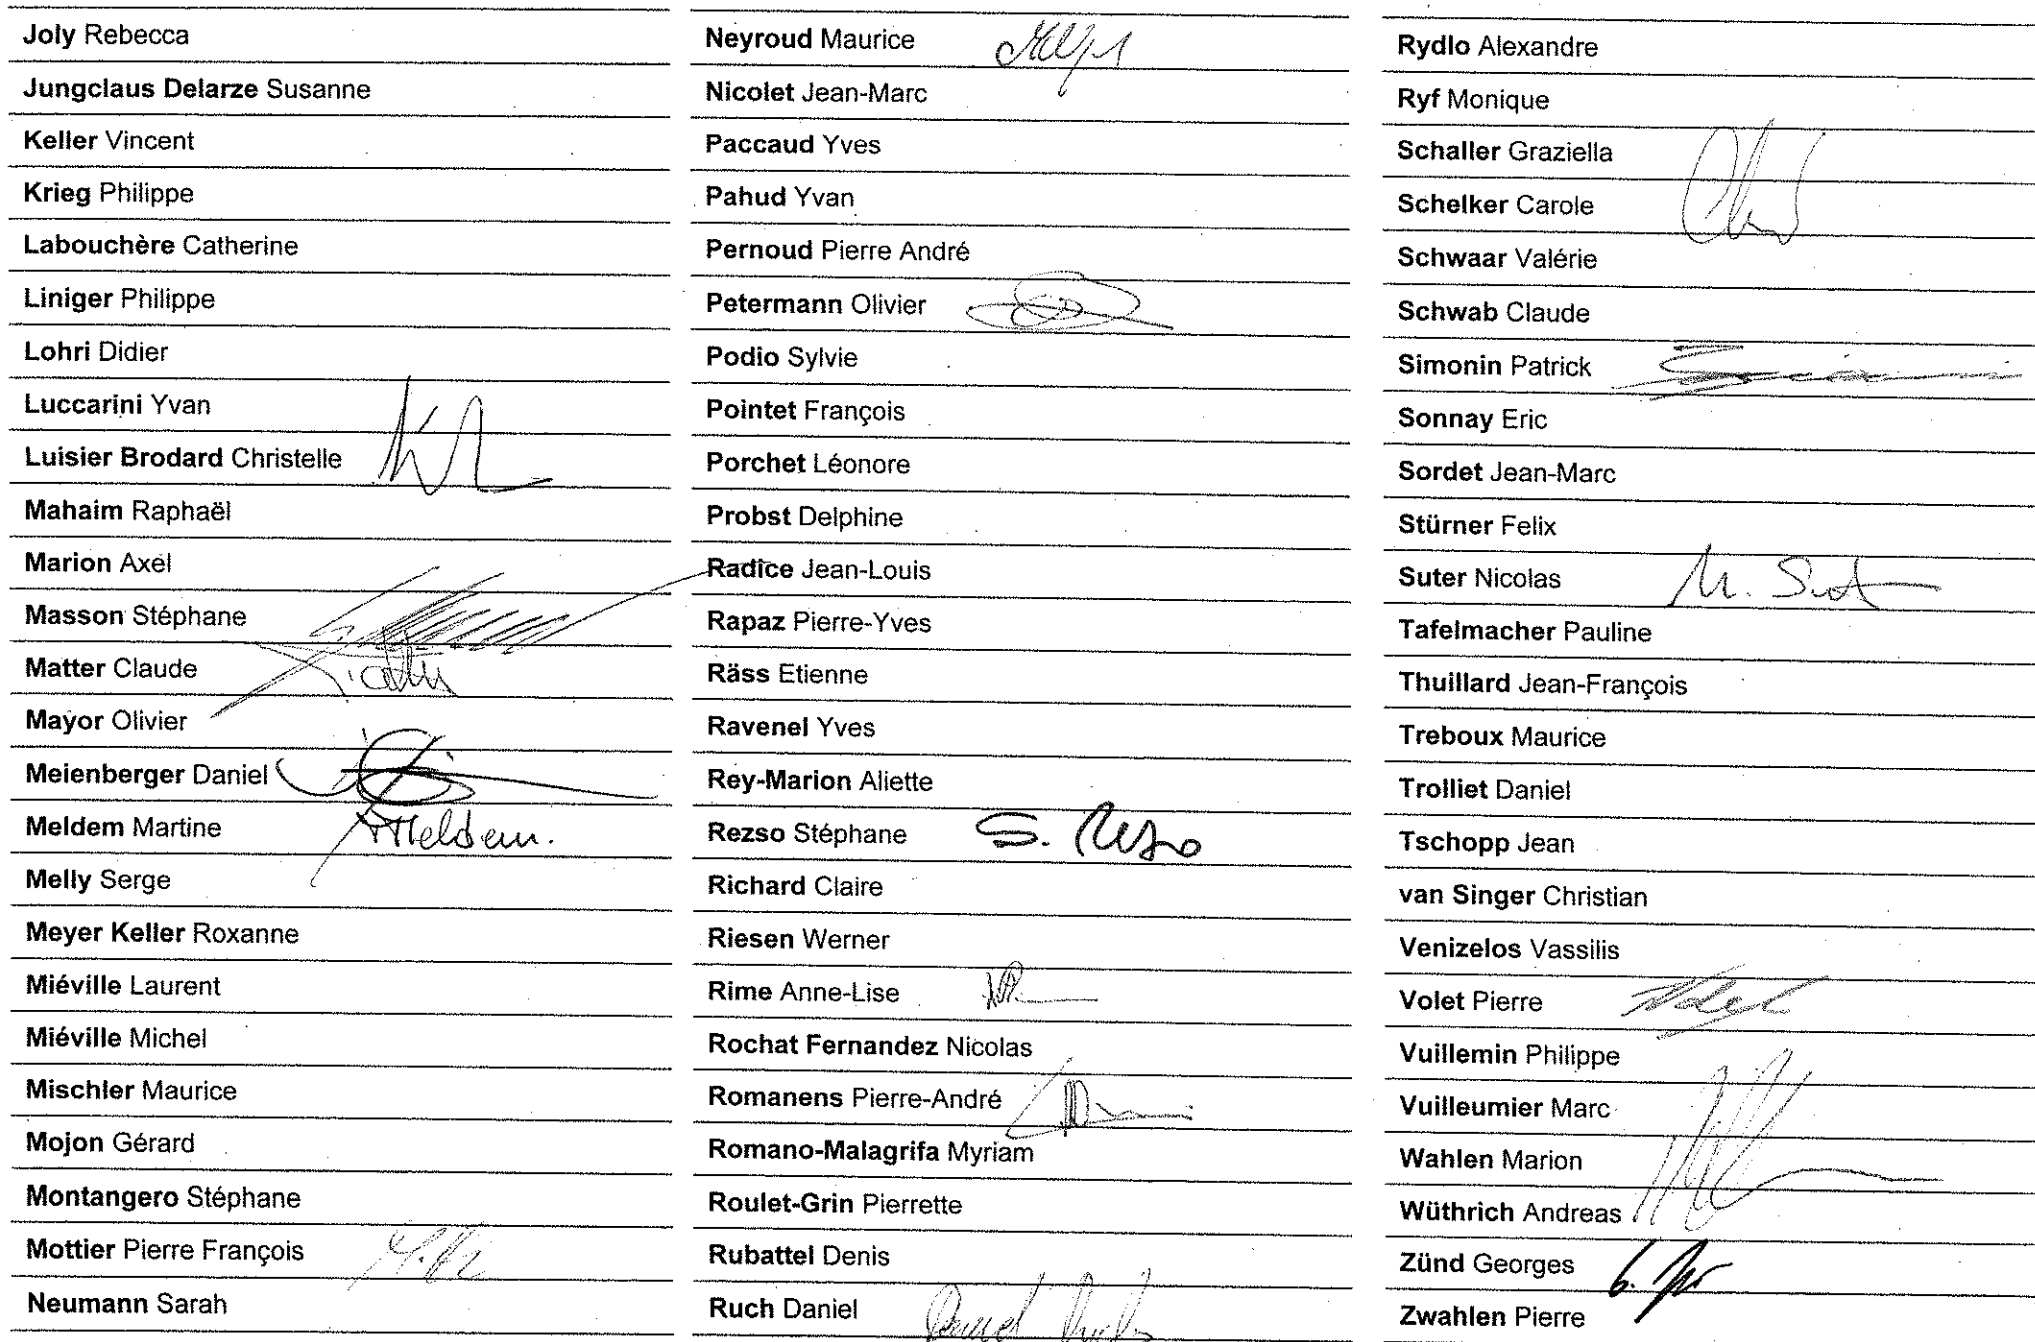 Joly Rebecca
Jungclaus Delarze Susanne
Keller Vincent
Krieg Philippe
Labouchère Catherine
Liniger Philippe
Lohri Didier
Luccarini Yvan
Luisier Brodard Christelle
Mahaim Raphaël
Marion Axel
Masson Stéphane
Matter Claude
Mayor Olivier
Meienberger Daniel
Meldem Martine Meldem.
Melly Serge
Meyer Keller Roxanne
Miéville Laurent
Miéville Michel
Mischler Maurice
Mojon Gérard
Montangero Stéphane
Mottier Pierre François
Neumann Sarah
Neyroud Maurice
Nicolet Jean-Marc
Paccaud Yves
Pahud Yvan
Pernoud Pierre André
Petermann Olivier
Podio Sylvie
Pointet François
Porchet Léonore
Probst Delphine
Radice Jean-Louis
Rapaz Pierre-Yves
Räss Etienne
Ravenel Yves
Rey-Marion Aliette
Rezso Stéphane S. Rezso
Richard Claire
Riesen Werner
Rime Anne-Lise
Rochat Fernandez Nicolas
Romanens Pierre-André
Romano-Malagrifa Myriam
Roulet-Grin Pierrette
Rubattel Denis
Ruch Daniel Daniel Ruch
Rydlo Alexandre
Ryf Monique
Schaller Graziella
Schelker Carole
Schwaar Valérie
Schwab Claude
Simonin Patrick
Sonnay Eric
Sordet Jean-Marc
Stürner Felix
Suter Nicolas N. Sut
Tafelmacher Pauline
Thuillard Jean-François
Treboux Maurice
Trolliet Daniel
Tschopp Jean
van Singer Christian
Venizelos Vassilis
Volet Pierre
Vuillemin Philippe
Vuilleumier Marc
Wahlen Marion
Wüthrich Andreas
Zünd Georges
Zwahlen Pierre